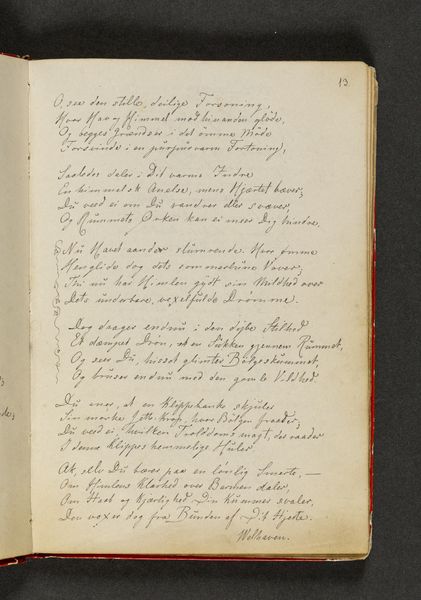 13.
O, see den stille, deilige Forsoning,
Hvor Hav og Himmel mod hinanden gløde,
Og begges Grændser i det ømme Møde
Forsvinde i en purpurvarm Fortoning,
Saaledes daler i Dit varme Indre
En himmelsk Anelse, mens Hjertet bæver;
Du veed ei om Du vandrer eller svæver,
Og Rummets Ørken kan ei meer Dig hindre.
Nu Havet aander slumrende. Hvor ømme
Henglide dog dets sommerlune Vover;
Thi nu har Himlen gydt sin Mildhed over
Dets underbare, vexelfulde Drømme.
Dog drages endnu i den dybe Stilhed
Et dæmpet Drøn, et Sukken gjennem Rummet,
Og seer Du, hisset glimter Bølgeskummet,
Og bruser endnu med den gamle Vildhed.
Du ener, at en Klippebanke skjuler
Sin mørke Jettekrop, hvor Bølgen fraader;
Du veed ei hvilken Trolddoms magt, der raader
I denne Klippes hemmelige Huler.
Ak, selv Du bærer paa en lønlig Smerte, —
Om Himlens Klarhed over Barmen daler,
Om Haab og Kjærlighed Din Kummer svaler,
Den voxer dog fra Bunden af Dit Hjerte.
Welhaven.